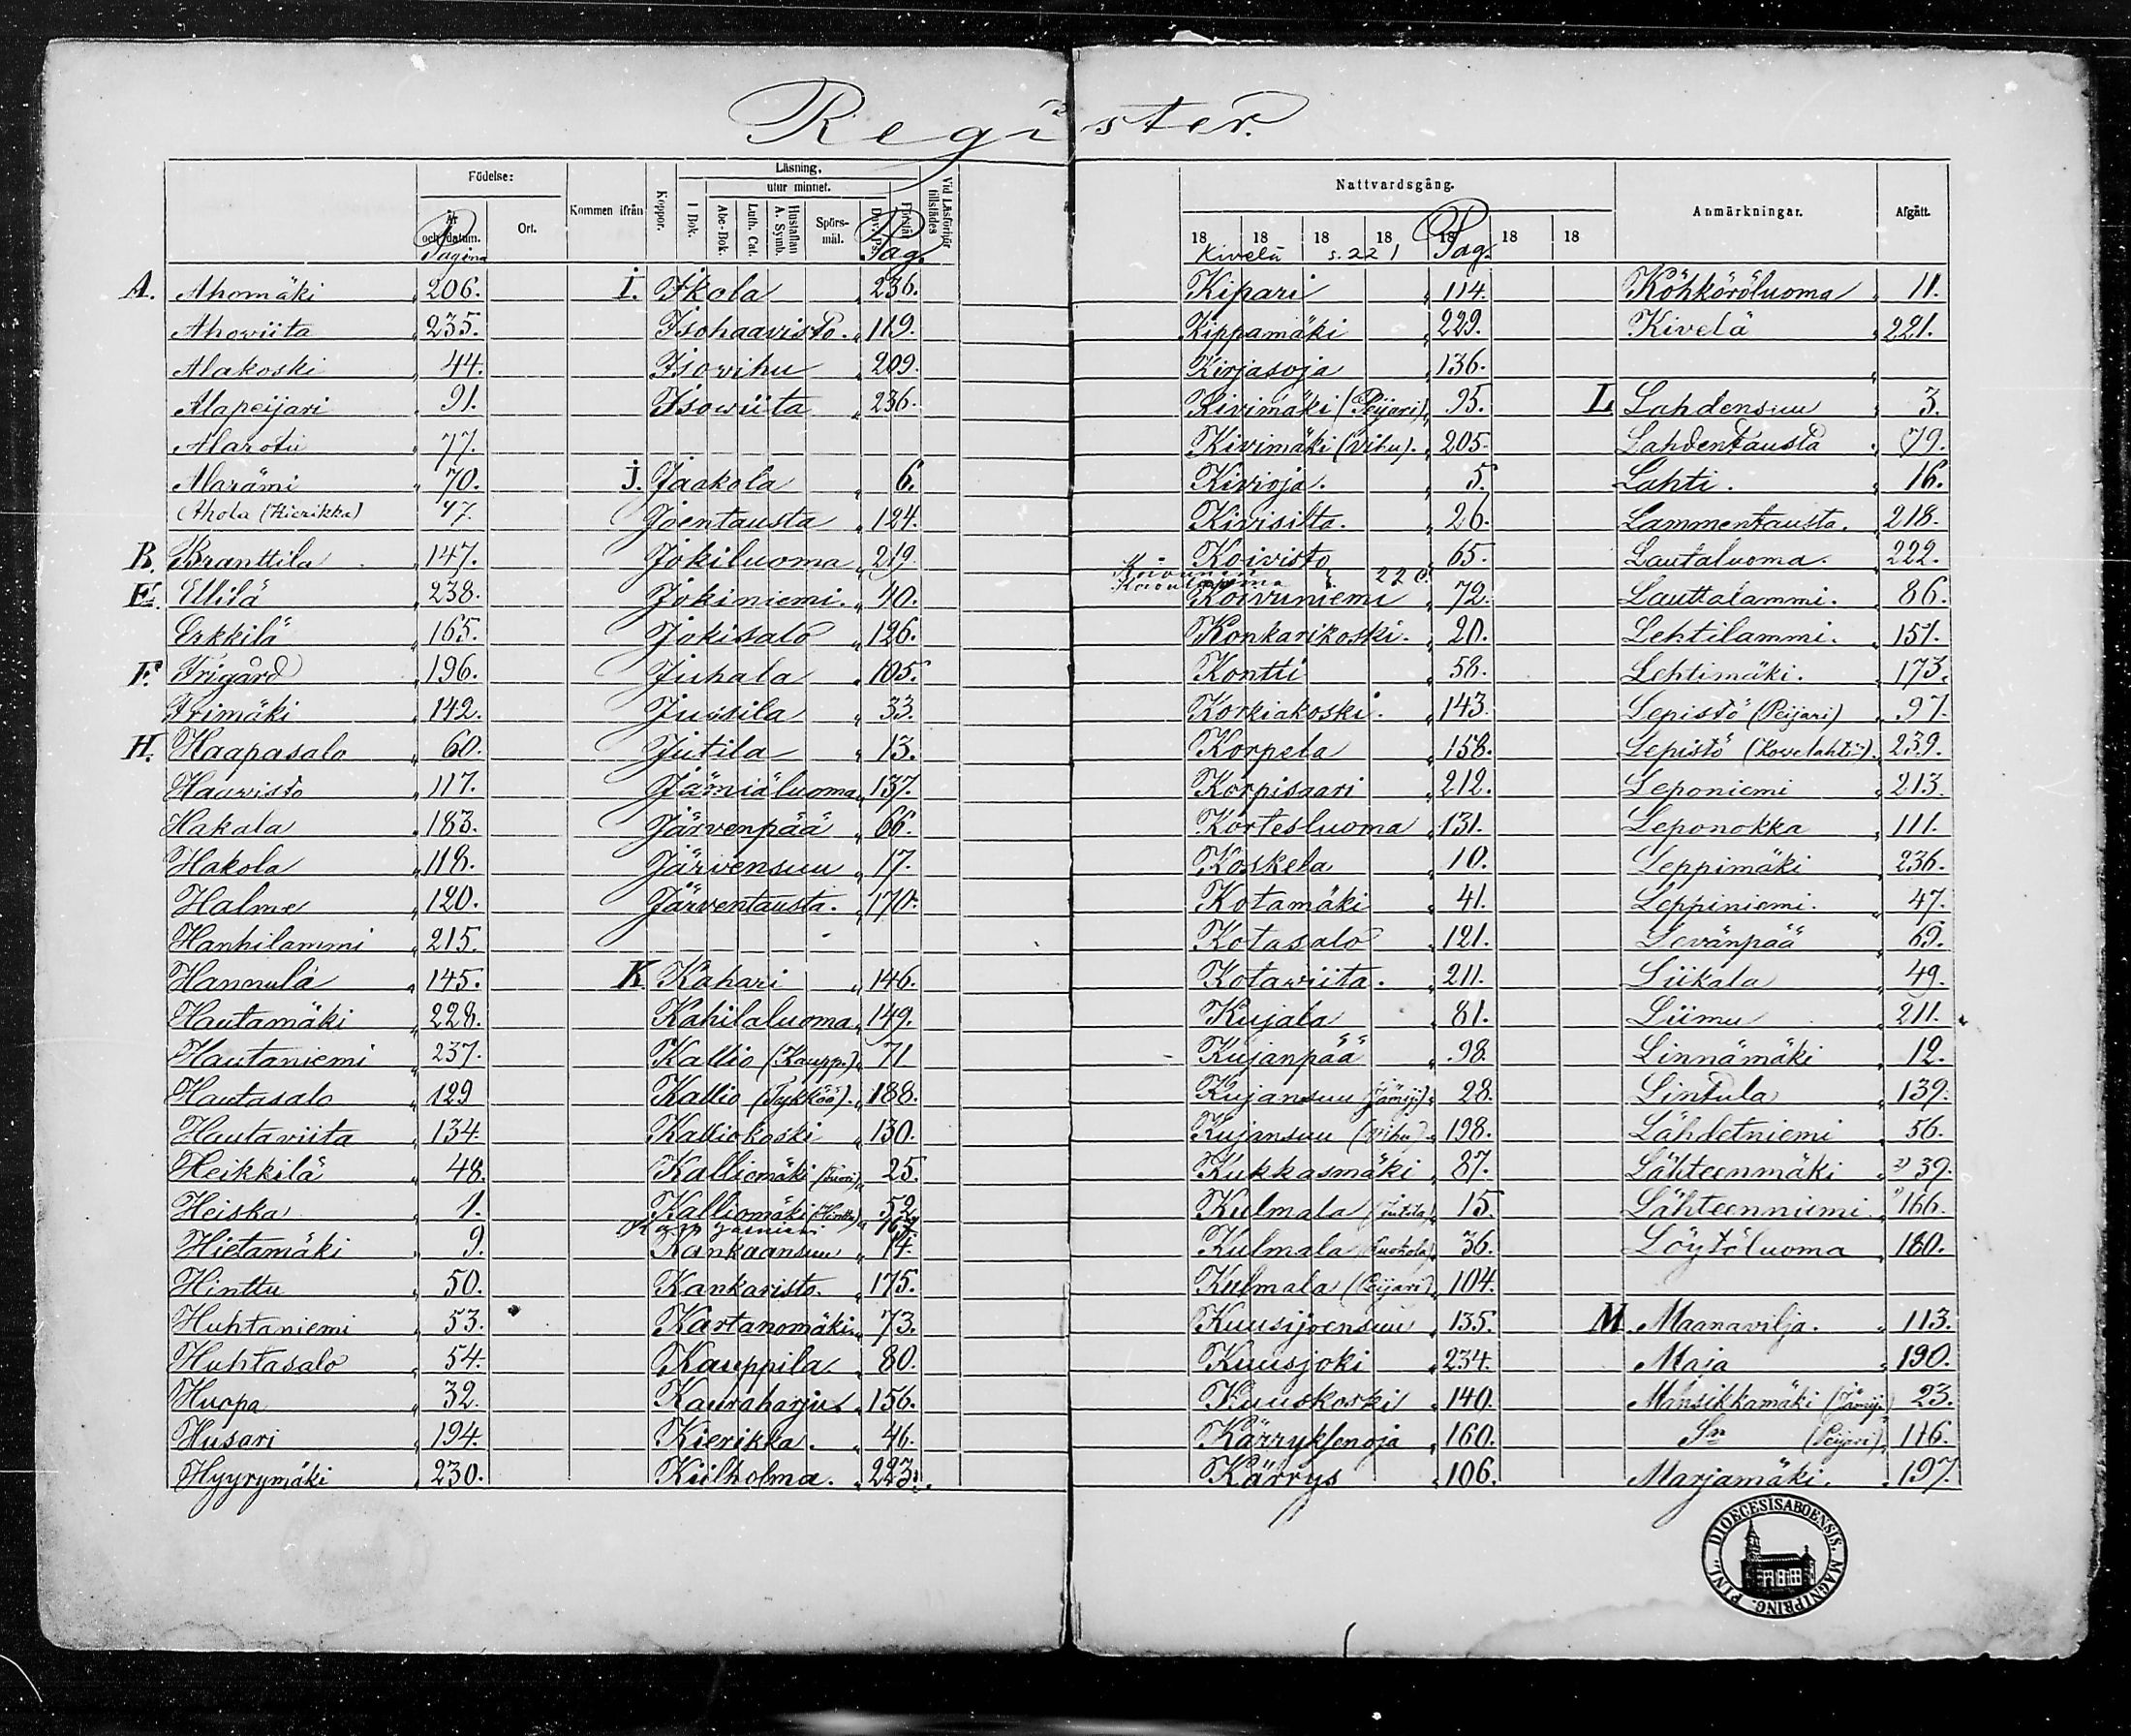 Register.
Födelse:
År och datum.
Ort.
Kommen ifrån
Koppor.
Läsning.
utur minnet.
I Bok.
Abc-Bok.
Luth. Cat.
Hustaflan A. Symb.
Spörs-mål.
Vid Läsförhör tillstädes
Pagina
Pag.
A. Ahomäki 206.
Ahoviita 235.
Alakoski 44.
Alapeijari 91.
Alarotu 77.
Alarämi 70.
Ahola (Kierikka) 47.
B. Branttila 147.
E. Ellilä 238.
Erkkilä 165.
F. Frigård 196.
Frimäki 142.
H. Haapasalo 60.
Haavisto 117.
Hakala 183.
Hakola 118.
Halme 120.
Hanhilammi 215.
Hannula 145.
Hautamäki 228.
Hautaniemi 237.
Hautasalo 129
Hautaviita 134.
Heikkilä 48.
Heiska 1.
Hietamäki 9.
Hinttu 50.
Huhtaniemi 53.
Huhtasalo 54.
Huopa 32.
Husari 194.
Hyyrymäki 230.
I. Ikola 236.
Isohaavisto. 119.
Isovihu 209.
Isowiita 236.
J. Jaakola 6.
Joentausta 124.
Jokiluoma 219.
Jokiniemi. 40.
Jokisalo 126.
Juhala 105.
Jussila 33.
Jutila 13.
Jämiäluoma 137.
Järvenpää 66.
Järvensuu 17.
Järventausta. 170.
K. Kahari 146.
Kahilaluoma 149.
Kallio (Kaupp.) 71.
Kallio (Tykköö). 188.
Kalliokoski 130.
Kalliomäki (Vuori) 25.
Kalliomäki (Hinttu) 52.
Kankaansuu 14.
Kankaristo. 175.
Kartanomäki 73.
Kauppila. 80.
Kauraharju 156.
Kierikka. 46.
Kiilholma. 223.
Nattvardsgång.
18 18 18 18 18 18 18
Anmärkningar.
Afgått.
Kivelä s. 221 Pag.
Kipari 114.
Kippamäki 229.
Kirjasoja 136.
Kivimäki (Peijari) 95.
Kivimäki (Vihu). 205.
Kivioja. 5.
Kivisilta. 26.
Koivisto 65.
220.
Koivuniemi 72.
Konkarikoski. 20.
Kontti 58.
Korkiakoski. 143.
Korpela 158.
Korpisaari 212.
Kortesluoma 131.
Koskela 10.
Kotamäki 41.
Kotasalo 121.
Kotawiita. 211.
Kujala 81.
Kujanpää 98.
Kujansuu (Jämijä) 28.
Kujansuu (Vihu) 198.
Kukkasmäki 87.
Kulmala (Jutila) 15.
Kulmala (Luokola) 36.
Kulmala (Peijari) 104.
Kuusijoensuu 135.
Kuusjoki 234.
Kuuskoski 140.
Kärryksenoja 160.
Kärrys 106.
Köhköröluoma 11.
Kivelä 221.
L Lahdensuu 3.
Lahdentausta 79.
Lahti. 16.
Lammentausta. 218.
Lautaluoma. 222.
Lauttalammi. 86.
Lehtilammi. 151.
Lehtimäki. 173.
Lepistö (Peijari) 97.
Lepistö (Kovelahti). 239.
Leponiemi 213.
Leponokka 111.
Leppimäki 236.
Leppiniemi. 47.
Levänpää 69.
Liikala 49.
Liimu 211.
Linnämäki 12.
Lintula 139.
Lähdetniemi 56.
Lähteenmäki 39.
Lähteenniemi 166.
Löytöluoma 180.
M. Maanavilja. 113.
Maja 190.
Mansikkamäki (Jämijä) 23.
Sn (Peijari) 116.
Marjamäki. 197.
DIOECESIS ABOENSIS. MAGNI PRINC. FINL.